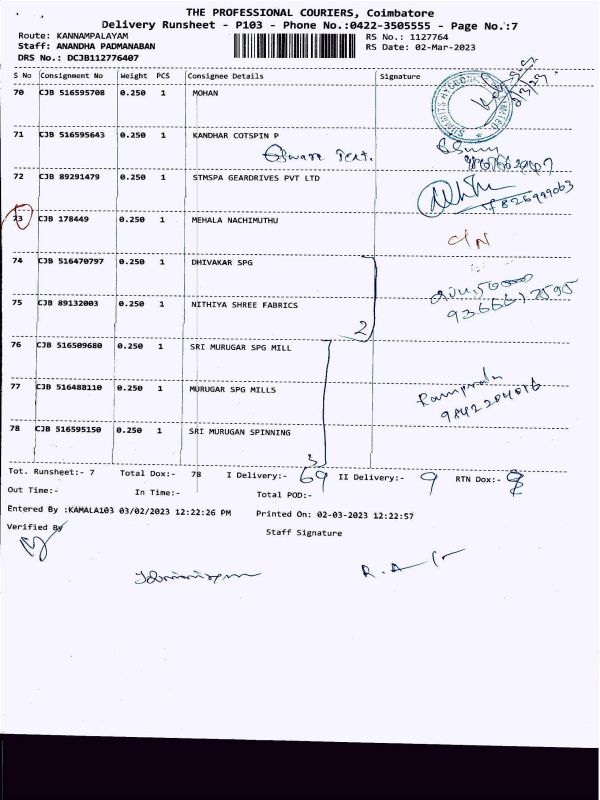 THE PROFESSIONAL COURIERS, Coimbatore
Delivery Runsheet - P103 - Phone No.:0422-3505555 - Page No.:7
Route: KANNAMPALAYAM RS No.: 1127764
Staff: ANANDHA PADMANABAN RS Date: 02-Mar-2023
DRS No.: DCJB112776407
S No Consignment No Weight PCS Consignee Details Signature
70 CJB 516595708 0.250 1 MOHAN
71 CJB 516595643 0.250 1 KANDHAR COTSPIN P
72 CJB 89291479 0.250 1 STMSPA GEARDRIVES PVT LTD
73 CJB 178449 0.250 1 MEHALA NACHIMUTHU
C/N
74 CJB 516470797 0.250 1 DHIVAKAR SPG
75 CJB 89132003 0.250 1 NITHIYA SHREE FABRICS
2
76 CJB 516509680 0.250 1 SRI MURUGAR SPG MILL
77 CJB 516488110 0.250 1 MURUGAR SPG MILLS
9842204016
78 CJB 516595150 0.250 1 SRI MURUGAN SPINNING
3
Tot. Runsheet:- 7 Total Dox:- 78 I Delivery:- 69 II Delivery:- 9 RTN Dox:-
Out Time:- In Time:- Total POD:-
Entered By :KAMALA103 03/02/2023 12:22:26 PM Printed On: 02-03-2023 12:22:57
Verified By Staff Signature